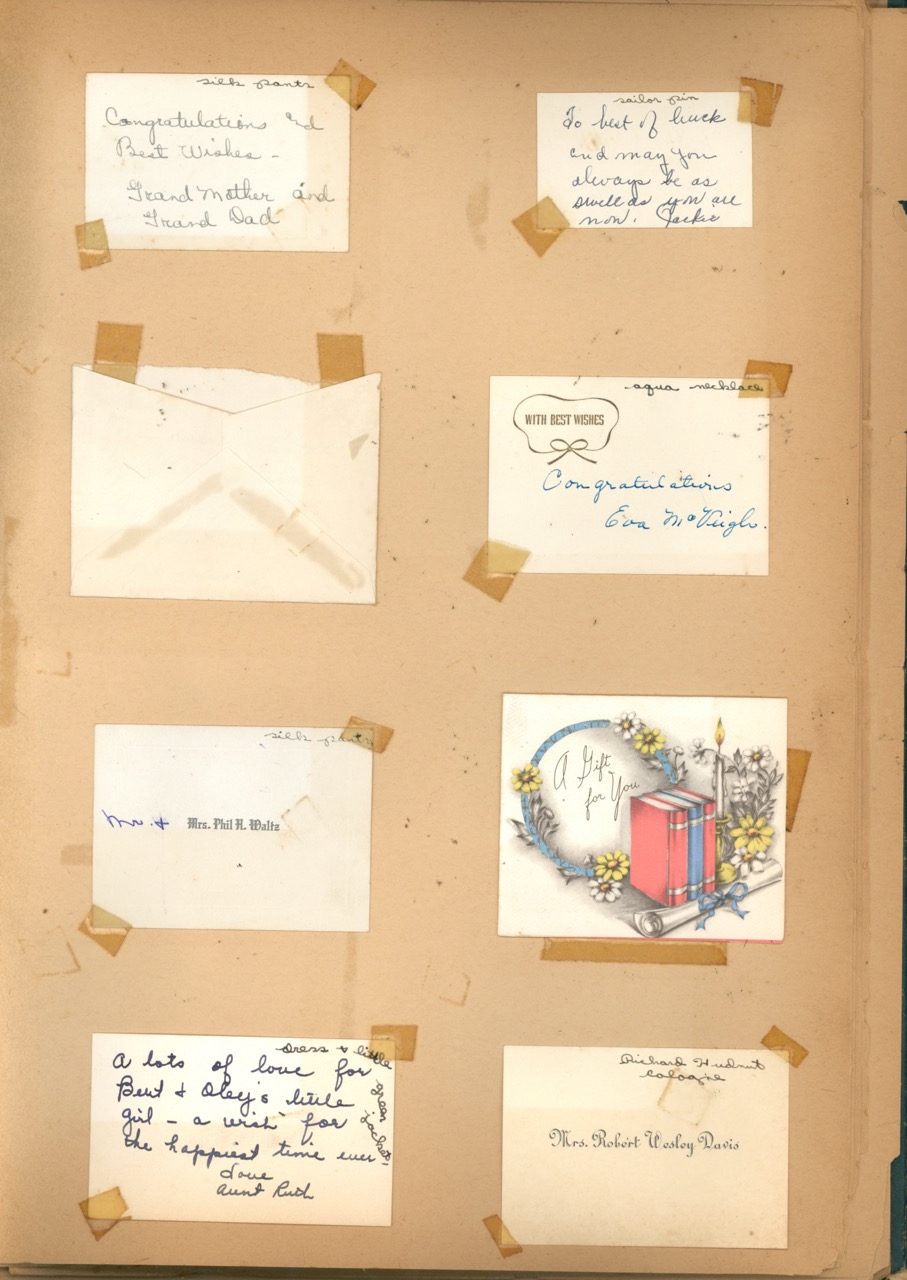 silk pants
Congratulations and
Best Wishes -
Grand Mother and
Grand Dad
sailor pin
To best of luck
and may you
always be as
swell as you are
now. Jackie
aqua necklace
WITH BEST WISHES
Congratulations
Eva McVeigh.
silk pants
Mr. & Mrs. Phil H. Waltz
A Gift
for You
dress & little green jacket!
A lots of love for
Beut & Oley's little
girl - a wish for
the happiest time ever
Love
Aunt Ruth
Richard Hudnut
cologne
Mrs. Robert Wesley Davis